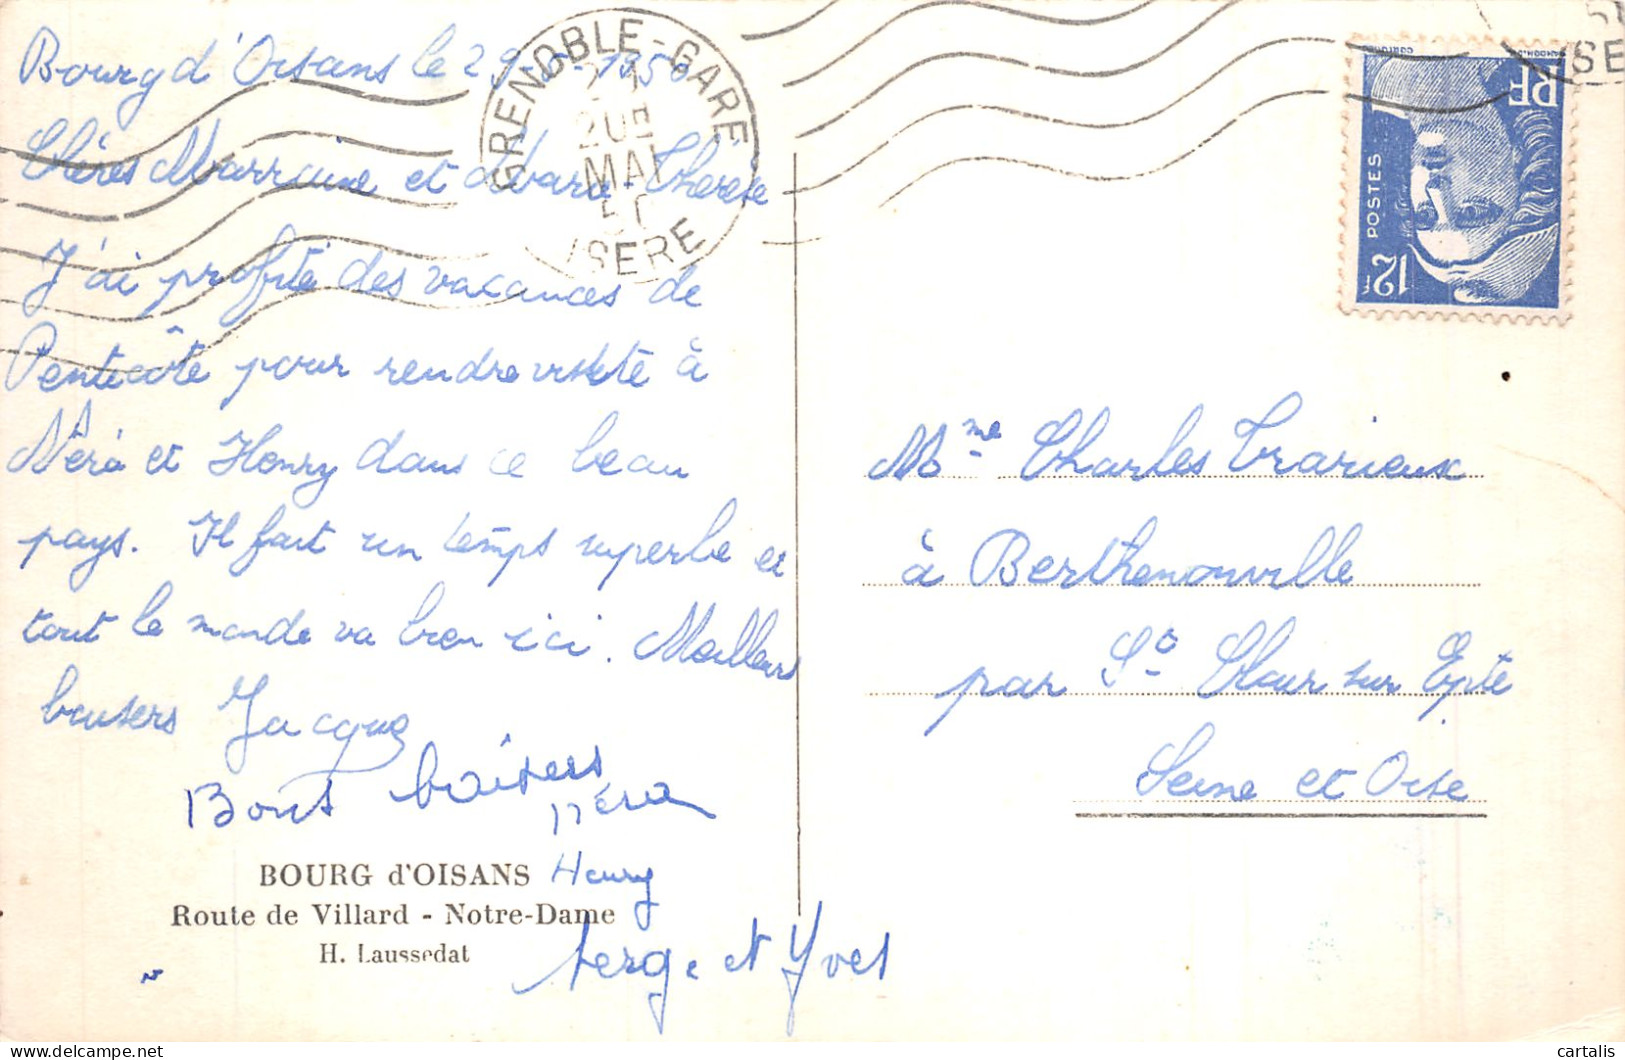 Bourg d'Oisans le 29-5-1950
Chères Marraine et Marie-Thérèse
J'ai profité des vacances de
Pentecôte pour rendre visite à
Néra et Henry dans ce beau
pays. Il fait un temps superbe et
tout le monde va bien ici. Meilleurs
baisers Jacques
Bons baisers
Néra
Henry
Serge et Yves
BOURG d'OISANS
Route de Villard - Notre-Dame
H. Laussedat
GRENOBLE-GARE
MAI
ISERE
RF
POSTES
12F
Mme Charles Trarieux
à Berthenonville
par St Clair sur Epte
Seine et Oise
cartalis